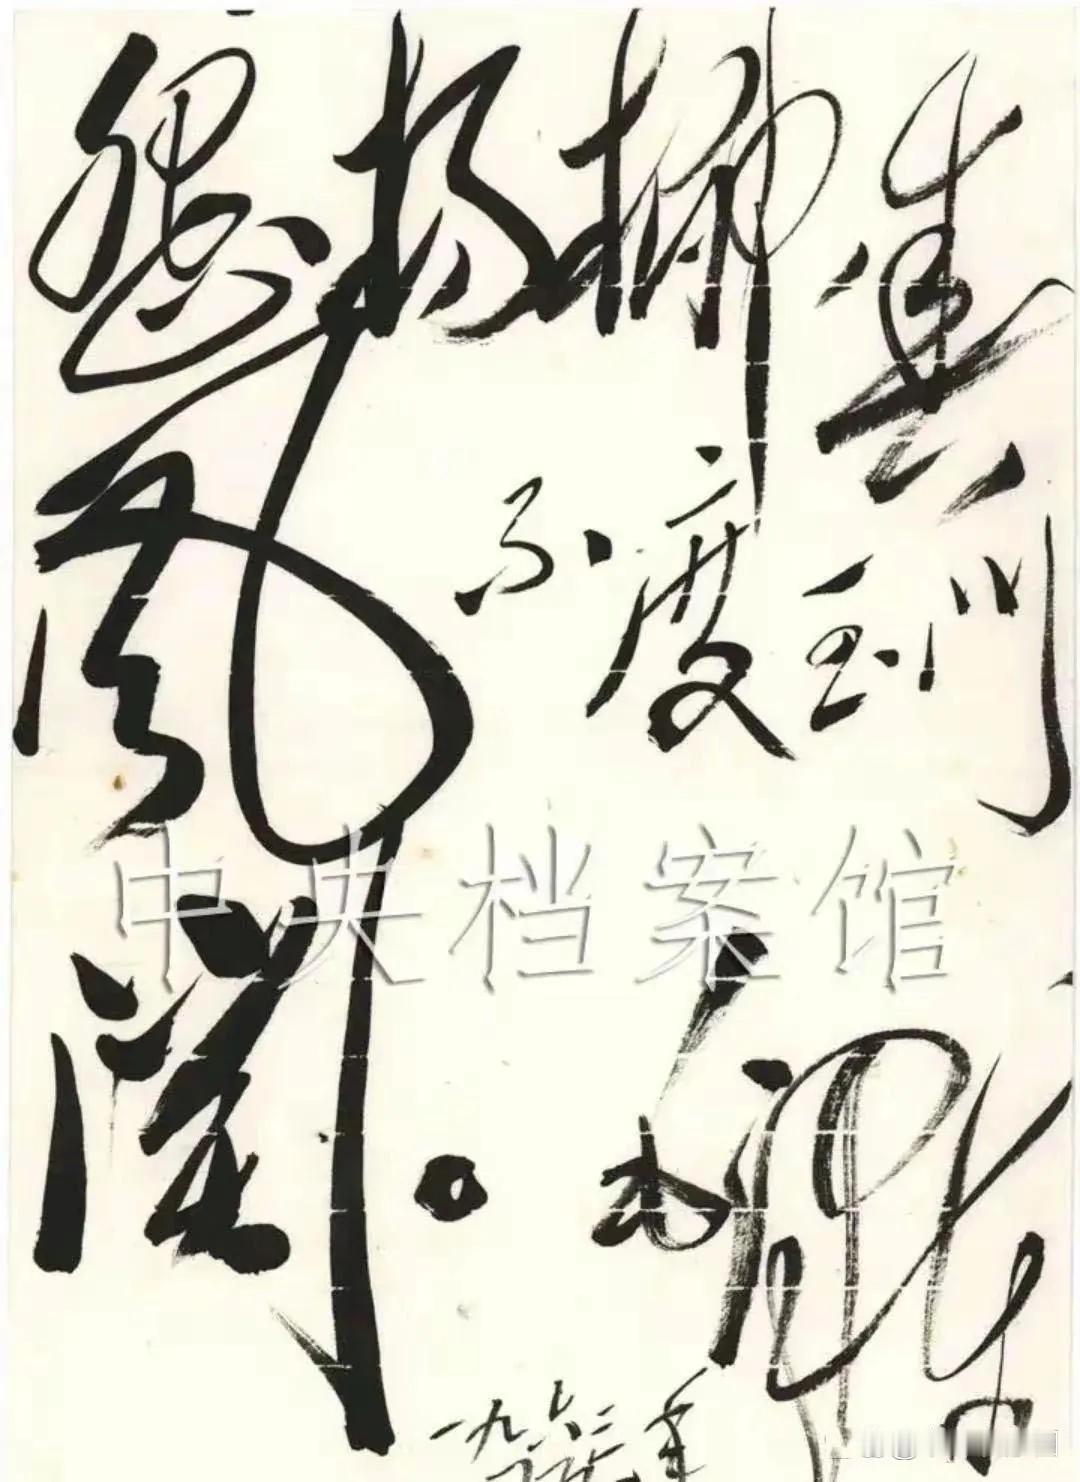 怨杨柳春
風不度玉门
中央档案馆
關。毛泽东
一九六二年